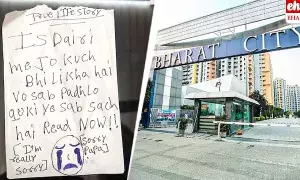 True Life Story
Is Dairi
me Jo Kuch
Bhi likha hai
vo sab Padhlo
quki yo sab sach
hai Read Now!!
[I'm
really
sorry]
[sorry
Papa]
BHARAT CITY
eha
EHA